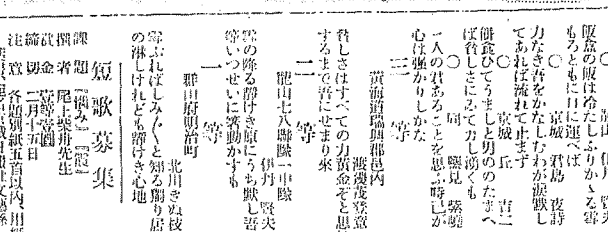 飯盒の飯は冷たしふりかゝる雪
もろともに口に運べば
京城 君島 夜詩
力なき吾をかなしむわが涙獣し
てあれば流れて止まず
○ 京城 丘 吉二
餅食ひてうましと男ののたまへ
ば貧しさにゐて力し湧くも
○ 同 鹽見 紫曉
一人の君あることを思ふ時己が
心は強かりしかな
三等
黄海道瑞興郡邑内
渡邊茂登意
貧しさはすべての力黄金ぞと思
するまで吾にせまり來
二等
龍山七八聯隊一中隊
伊丹 賢夫
雪の降る靜けき原にうち默し吾
等いつせいに箸動かすも
一等
群山府明治町
北川きぬ枝
雪ふればしみ〴〵と知る獨り居
の淋しけれども靜けき心地
短歌募集
課題 『惱み』『霞』
撰者 尾上柴舟先生
賞金 壹等壹圓
締切 二月十五日
注意 各題別紙五首以内、用紙